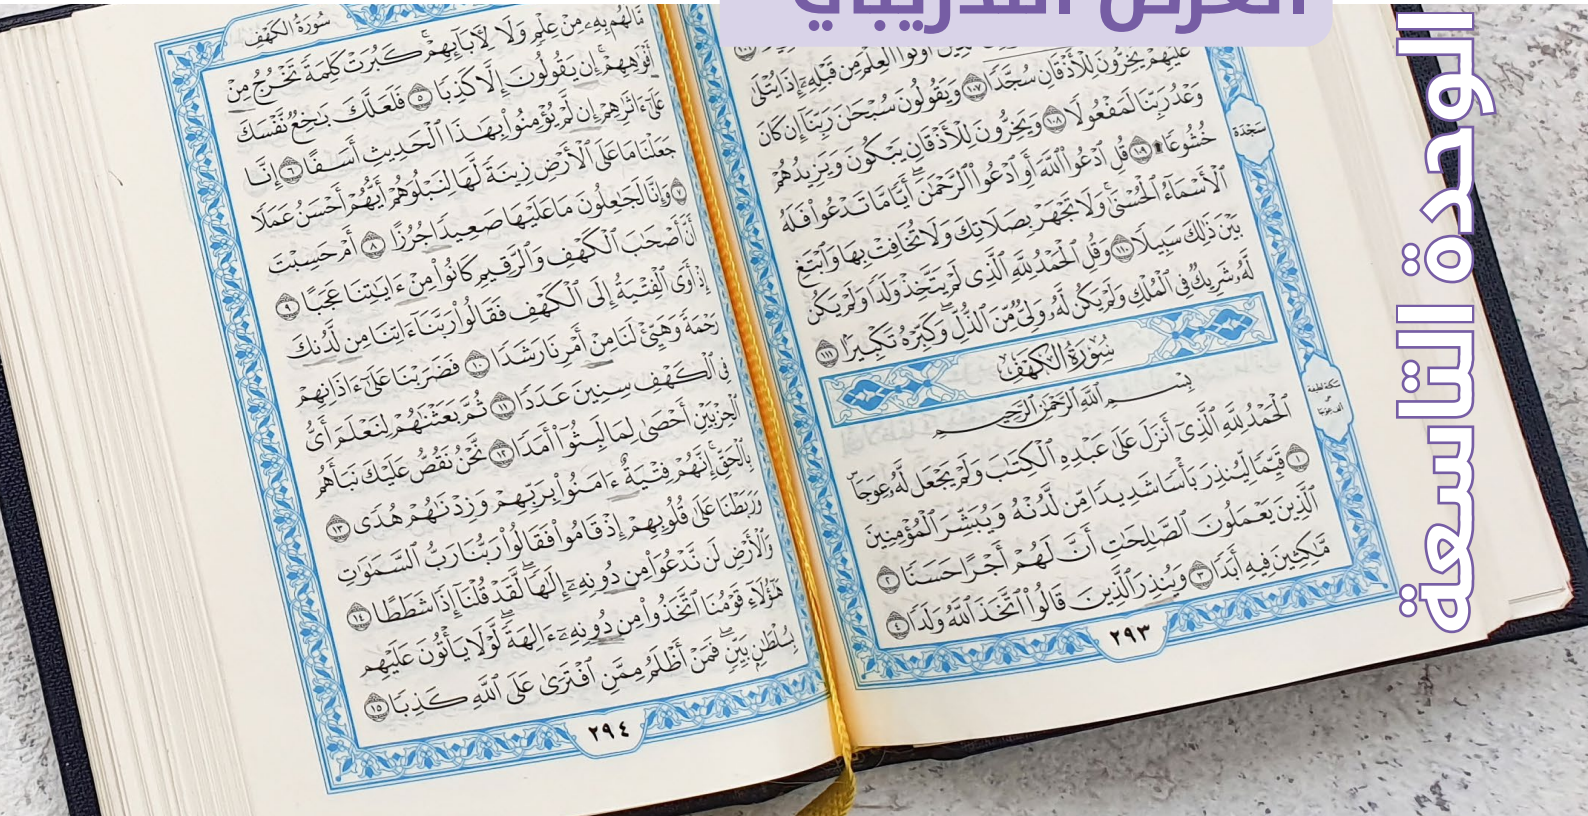 العرض التدريبي
الوحدة التاسعة
أُوتُوا۟ ٱلْعِلْمَ مِن قَبْلِهِۦٓ إِذَا يُتْلَىٰ
عَلَيْهِمْ يَخِرُّونَ لِلْأَذْقَانِ سُجَّدًا ١٠٧ وَيَقُولُونَ سُبْحَٰنَ رَبِّنَآ إِن كَانَ
وَعْدُ رَبِّنَا لَمَفْعُولًا ١٠٨ وَيَخِرُّونَ لِلْأَذْقَانِ يَبْكُونَ وَيَزِيدُهُمْ
خُشُوعًا ۩ ١٠٩ قُلِ ٱدْعُوا۟ ٱللَّهَ أَوِ ٱدْعُوا۟ ٱلرَّحْمَٰنَ ۖ أَيًّا مَّا تَدْعُوا۟ فَلَهُ
ٱلْأَسْمَآءُ ٱلْحُسْنَىٰ ۚ وَلَا تَجْهَرْ بِصَلَاتِكَ وَلَا تُخَافِتْ بِهَا وَٱبْتَغِ
بَيْنَ ذَٰلِكَ سَبِيلًا ١١٠ وَقُلِ ٱلْحَمْدُ لِلَّهِ ٱلَّذِى لَمْ يَتَّخِذْ وَلَدًا وَلَمْ يَكُن
لَّهُۥ شَرِيكٌ فِى ٱلْمُلْكِ وَلَمْ يَكُن لَّهُۥ وَلِىٌّ مِّنَ ٱلذُّلِّ ۖ وَكَبِّرْهُ تَكْبِيرًۢا ١١١
سُورَةُ الكَهْفِ
بِسْمِ ٱللَّهِ ٱلرَّحْمَٰنِ ٱلرَّحِيمِ
ٱلْحَمْدُ لِلَّهِ ٱلَّذِىٓ أَنزَلَ عَلَىٰ عَبْدِهِ ٱلْكِتَٰبَ وَلَمْ يَجْعَل لَّهُۥ عِوَجَاۜ
١ قَيِّمًا لِّيُنذِرَ بَأْسًا شَدِيدًا مِّن لَّدُنْهُ وَيُبَشِّرَ ٱلْمُؤْمِنِينَ
ٱلَّذِينَ يَعْمَلُونَ ٱلصَّٰلِحَٰتِ أَنَّ لَهُمْ أَجْرًا حَسَنًا ٢
مَّٰكِثِينَ فِيهِ أَبَدًا ٣ وَيُنذِرَ ٱلَّذِينَ قَالُوا۟ ٱتَّخَذَ ٱللَّهُ وَلَدًا ٤
٢٩٣
سَجْدَة
سكتة لطيفة
على
ألف عِوَجَا
سُورَةُ الكَهْفِ
مَّا لَهُم بِهِۦ مِنْ عِلْمٍ وَلَا لِءَابَآئِهِمْ ۚ كَبُرَتْ كَلِمَةً تَخْرُجُ مِنْ
أَفْوَٰهِهِمْ ۚ إِن يَقُولُونَ إِلَّا كَذِبًا ٥ فَلَعَلَّكَ بَٰخِعٌ نَّفْسَكَ
عَلَىٰٓ ءَاثَٰرِهِمْ إِن لَّمْ يُؤْمِنُوا۟ بِهَٰذَا ٱلْحَدِيثِ أَسَفًا ٦ إِنَّا
جَعَلْنَا مَا عَلَى ٱلْأَرْضِ زِينَةً لَّهَا لِنَبْلُوَهُمْ أَيُّهُمْ أَحْسَنُ عَمَلًا
٧ وَإِنَّا لَجَٰعِلُونَ مَا عَلَيْهَا صَعِيدًا جُرُزًا ٨ أَمْ حَسِبْتَ
أَنَّ أَصْحَٰبَ ٱلْكَهْفِ وَٱلرَّقِيمِ كَانُوا۟ مِنْ ءَايَٰتِنَا عَجَبًا ٩
إِذْ أَوَى ٱلْفِتْيَةُ إِلَى ٱلْكَهْفِ فَقَالُوا۟ رَبَّنَآ ءَاتِنَا مِن لَّدُنكَ
رَحْمَةً وَهَيِّئْ لَنَا مِنْ أَمْرِنَا رَشَدًا ١٠ فَضَرَبْنَا عَلَىٰٓ ءَاذَانِهِمْ
فِى ٱلْكَهْفِ سِنِينَ عَدَدًا ١١ ثُمَّ بَعَثْنَٰهُمْ لِنَعْلَمَ أَىُّ
ٱلْحِزْبَيْنِ أَحْصَىٰ لِمَا لَبِثُوٓا۟ أَمَدًا ١٢ نَّحْنُ نَقُصُّ عَلَيْكَ نَبَأَهُم
بِٱلْحَقِّ ۚ إِنَّهُمْ فِتْيَةٌ ءَامَنُوا۟ بِرَبِّهِمْ وَزِدْنَٰهُمْ هُدًى ١٣
وَرَبَطْنَا عَلَىٰ قُلُوبِهِمْ إِذْ قَامُوا۟ فَقَالُوا۟ رَبُّنَا رَبُّ ٱلسَّمَٰوَٰتِ
وَٱلْأَرْضِ لَن نَّدْعُوَا۟ مِن دُونِهِۦٓ إِلَٰهًا ۖ لَّقَدْ قُلْنَآ إِذًا شَطَطًا ١٤
هَٰٓؤُلَآءِ قَوْمُنَا ٱتَّخَذُوا۟ مِن دُونِهِۦٓ ءَالِهَةً ۖ لَّوْلَا يَأْتُونَ عَلَيْهِم
بِسُلْطَٰنٍۭ بَيِّنٍ ۖ فَمَنْ أَظْلَمُ مِمَّنِ ٱفْتَرَىٰ عَلَى ٱللَّهِ كَذِبًا ١٥
٢٩٤